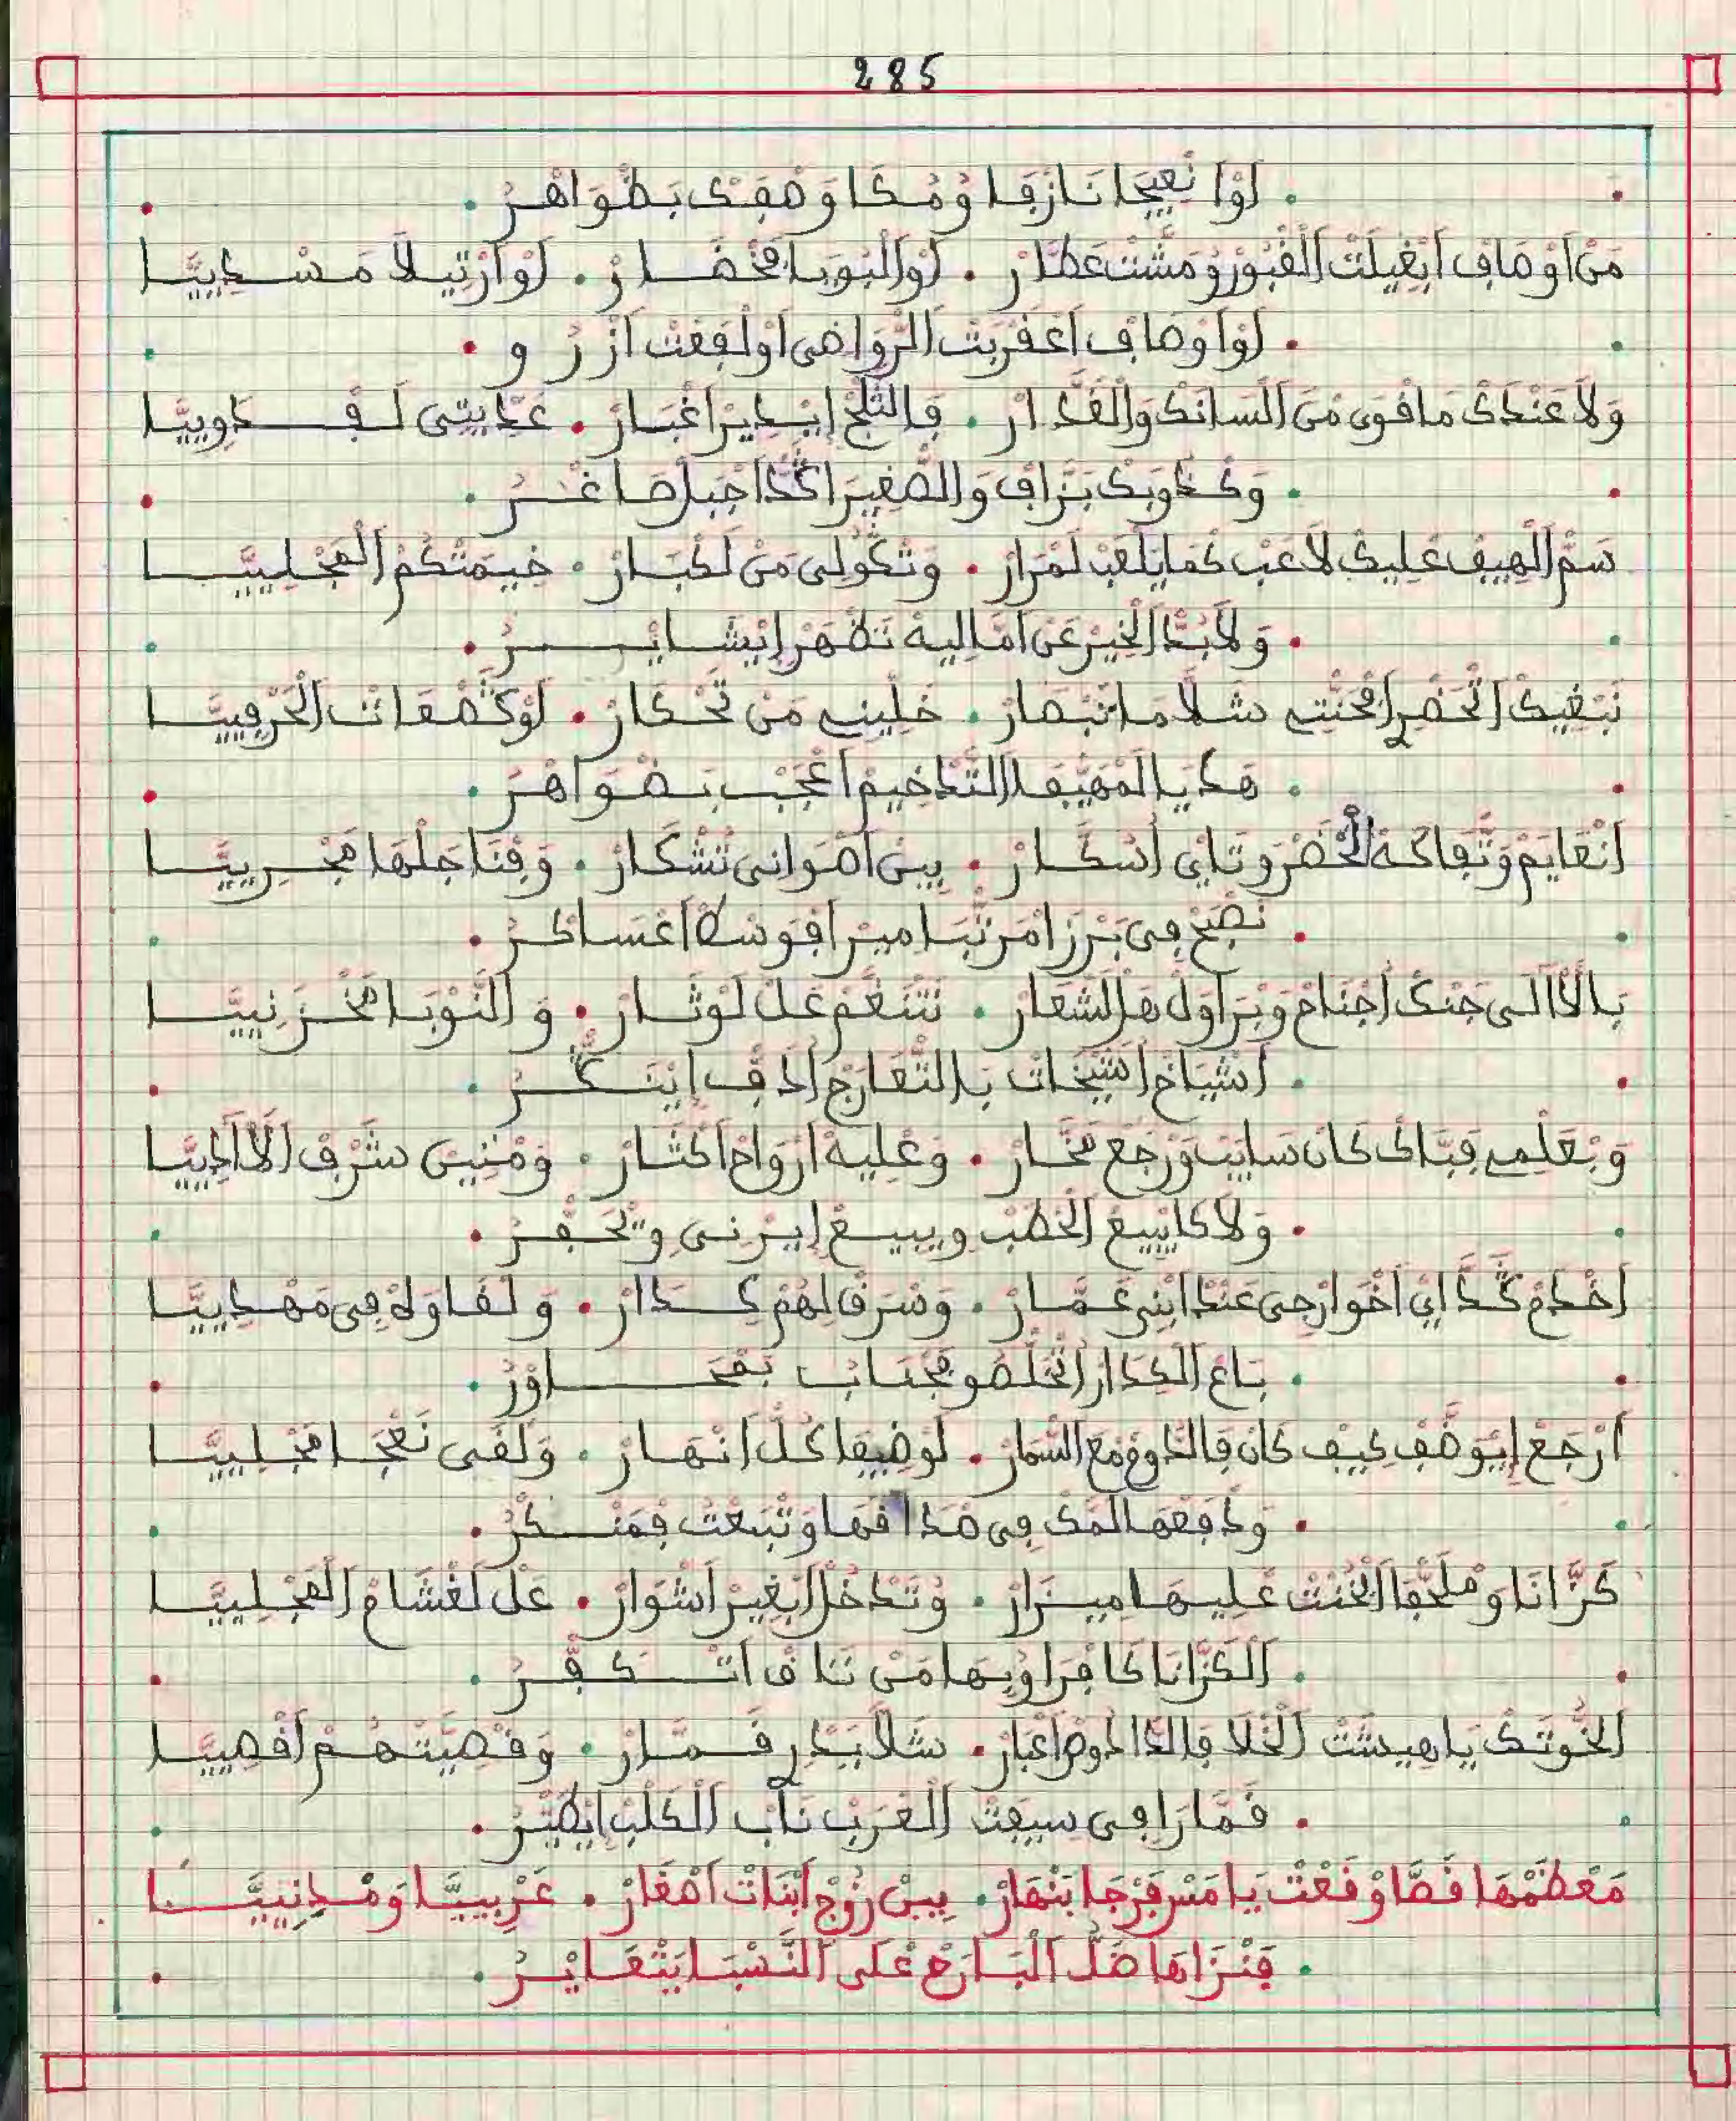 285
لَوْا نْعِيجَا نَازْقَا وُمْكَا وَصْفِكْ بَظْوَاهْرُ
مَنْ اَوْصَافْ اَبْغِيلَتْ الْقْبُورْ وُمَشْتْ عَطَّارْ . لَوْ اَلْبُوبَا مْخْضَارْ . لَوْ اَرْتِيلَا مَسْدِيَّا
لَوْا وْصَافْ اَعْقْرَبْتْ الرّْوَاضِي اَوْ لَفْعَتْ اَزْرُو
وَلَا عَنْدَكْ مَا قْوَى مْنْ اَلْسَانَكْ وَالْغَدَّارْ . فَالثَّلْجْ اِيدِيرْ اَغْبَارْ . عَدِّيتِي لَفْدَاوِيَّا
وَكْدُوبَكْ بَزَّافْ وَالصّْغِيرْ اَكْدَا جْبَلْ صَاغْرُ
سَمّْ اَلْهِيفْ عْلِيكْ لَاعَبْ كْمَا يَلْعَبْ لَمْرَارْ . وَتْكُولِي مَنْ لَكْبَارْ . خِيمَتْكُمْ اَلْعَجْلِيَّا
وَلَابُدَّ الْخِيرْ عَنْ اَمَّالِيهْ تَظْهَرْ اِبْشَايْرُ
نَبْغِيكْ اَتْحَضْرِ اَفْجَنْتِي شَلَّا مَا تَبْصَارْ . خَلِّينِي مَنْ تَحْكَارْ . لَوْكَتْصْعَاتْ الْحَرْفِيَّا
هَكْ يَا لَمْهَيّْفَا التَّدْخِيمْ اَعْجَبْ بَضْوَاهْرُ
اَنْعَايَمْ وَتْفَاكَهْ الْخْضَرْ وَتَايْ اَسْكَّارْ . بِينْ اَصْوَانِي تَشْكَارْ . وَقْنَا جَلْهَا مْجْرِيَّا
نَصْبَحْ فِي بَرْزْ اَمْرَتْبَا مِيرْ اَقْوْ سْطْ اَعْسَاكْرُ
بَالْآلَا اَلِي جَنْكْ اَجْنَاحْ وَبْرَاوَلْ هَلْ الشَّعَارْ . نَتْنَغَّمْ عَلْ لَوْتَارْ . وَ النُّوْبَا مَخْزْنِيَّا
اَشْيَاخْ اَشِّيخَاتْ بَالتّْعَارَجْ اَدَفْ اَيْنَكَّرُ
وَبْعَلْمِي قَبَّاكْ كَانْ سَايَبْ وَرْجَعْ فَخَّارْ . وَعْلِيهْ اَرْوَاحْ اَكْثَارْ . وَمْنِينْ شْرَفْ اَلَّا اَدِيَّا
وَلَا كَايْبِيعْ الْحْطَبْ وِيبِيعْ اِيرْنِي وِتْحَفْرُ
اَخْدَمْ كَدَّا اَيْ اَخْوَارْجِي عَنْدْ اَبْنِي عَمَّارْ . وَسْرَقْ لِهُمْ كِدَارْ . وَ لْقَاوَهْ فِي مَهْدِيَّا
بَاعْ اَلْكِدَارْ اَتْخَلْصُو مْجْنَابْ بَمْحَاوْرُ
اَرْجَعْ اِيْوَضَّفْ كِيفْ كَانْ فَالدَّاوِحْ مْعَ السَّمَّارْ . لَوْضِيفَا كُلّْ اَنْهَارْ . وَلْقَى نَعْجَا مْجْلِيَّا
وَدْفَعْهَا لَمّْكْ فِي صْدَاقْهَا وَتْبَعْتْ فَمَنْكْرُ
كَرَّانَا وَمْلَحّْفَا اَلْخُنْتْ عْلِيهَا مِيزَارْ . وَتَدْخُلْ اَبْغِيرْ اَشْوَارْ . عَلْ لَغْشَامْ الْعَجْلِيَّا
اَلْكَرَّانَا كَافْرَا وِبِهَا مَنْ نَتَاقْ اَتْكَفْرُ
اَلْخُوتَكْ يَا هِيشَتْ اَلْخْلَا فَالدَّادُوحْ اَعْبَارْ . شَلَّا بَيْدِ قَمَّارْ . وَقْصِيَّتْهُمْ اَقْصِيَّا
قَمَّارَا فِي سِيفَتْ اَلْعْرَبْ نَابْ اَلْكَلْبْ اَيْطَيّْرُ
مَعْظَمْهَا قَصَّا وْقْعَتْ يَا مَسْ فَرْجَا بَنْهَارْ . بِينْ زُوجْ اَبْنَاتْ اَصْغَارْ . عَرْبِيَّا وَمْدِينِيَّا
فَنْزَاهَا ضَلّْ اَلْبَارَحْ عْلَى اَلنَّسْبَا يَتْعَايْرُ